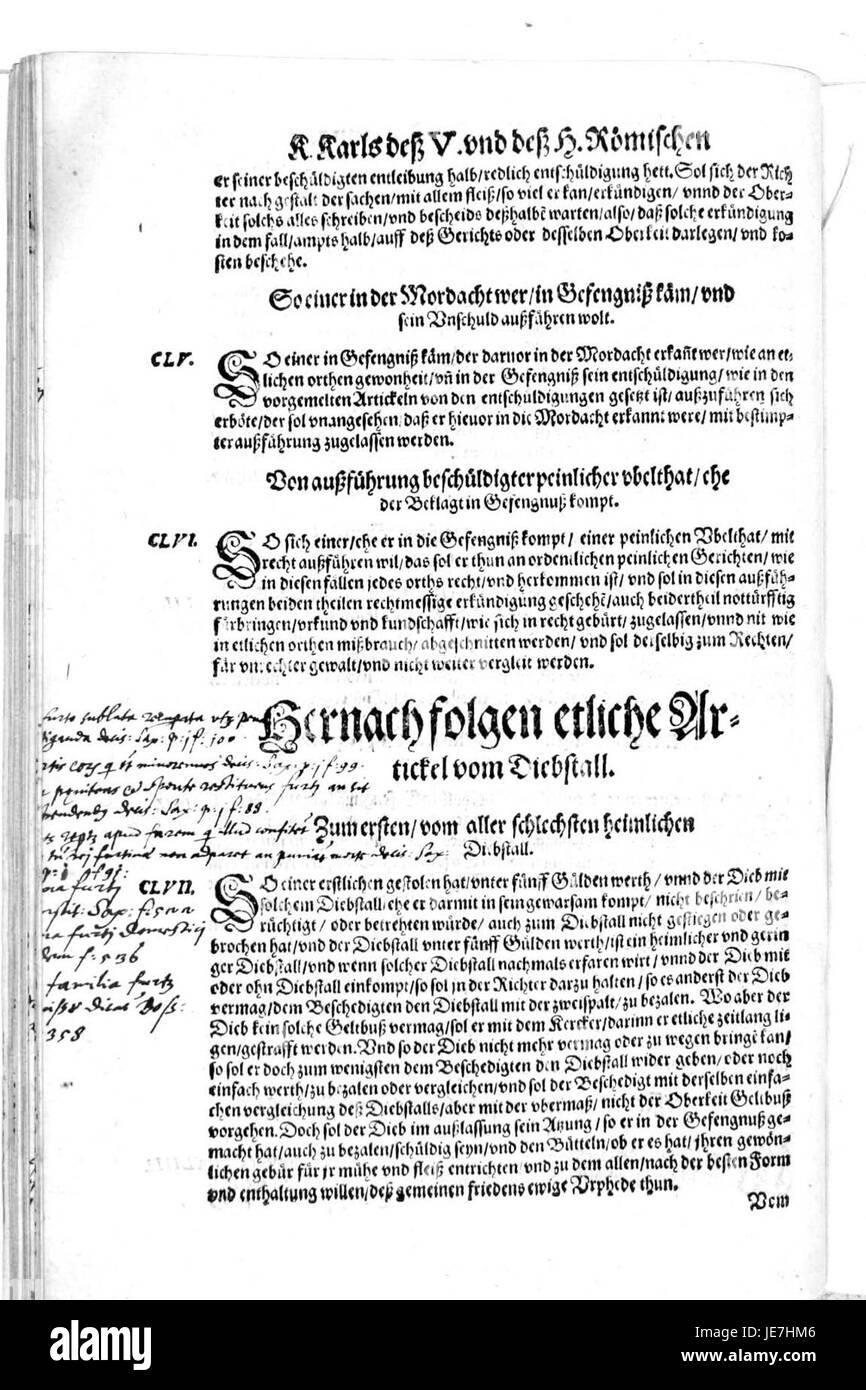 K. Karls deß V. vnd deß H. Römischen
er seiner beschüldigten entleibung halb/redlich entschüldigung hett. Sol sich der Rich
ter nach gestalt der sachen/mit allem fleiß/so viel er kan/erkündigen/ vnnd der Ober-
keit solchs alles schreiben/vnd bescheids deßhalbẽ warten/also/daß solche erkündigung
in dem fall/ampts halb/auff deß Gerichts oder desselben Oberkeit darlegen/vnd ko-
sten beschehe.
So einer in der Mordacht wer/in Gefengniß käm/vnd
sein Vnschuld außführen wolt.
CLV. SO einer in Gefengniß käm/der daruor in der Mordacht erkañt wer/wie an et-
lichen orthen gewonheit/vñ in der Gefengniß sein entschüldigung/wie in den
vorgemelten Artickeln von den entschüldigungen gesetzt ist/außzuführen sich
erböte/der sol vnangesehen/daß er hieuor in die Mordacht erkannt were/mit bestimp-
ter außführung zugelassen werden.
Von außführung beschüldigter peinlicher vbelthat/ehe
der Beklagt in Gefengnuß kompt.
CLVI. SO sich einer/ehe er in die Gefengniß kompt/ einer peinlichen Vbelthat/mit
recht außführen wil/das sol er thun an ordentlichen peinlichen Gerichten/wie
in diesen fällen jedes orths recht/vnd herkommen ist/vnd sol in diesen außfüh-
rungen beiden theilen rechtmessige erkündigung geschehẽ/auch beidertheil notturfftig
fürbringen/vrkund vnd kundschafft/wie sich in recht gebürt/zugelassen/vnnd nit wie
in etlichen orthen mißbrauch/abgeschnitten werden/vnd sol derselbig zum Rechten/
für vnrechter gewalt/vnd nicht weiter vergleit werden.
Hernach folgen etliche Ar-
tickel vom Diebstall.
Zum ersten/vom aller schlechsten heimlichen
Diebstall.
CLVII. SO einer erstlichen gestolen hat/vnter fünff Gülden werth/vnnd der Dieb mit
solchem Diebstall/ehe er darmit in sein gewarsam kompt/nicht beschrien/be-
rüchtigt/oder betretten würde/auch zum Diebstall nicht gestiegen oder ge-
brochen hat/vnd der Diebstall vnter fünff Gülden werth/ist ein heimlicher vnd gerin
ger Diebstall/vnd wenn solcher Diebstall nachmals erfaren wirt/vnnd der Dieb mit
oder ohn Diebstall einkompt/so sol jn der Richter darzu halten/so es anderst der Dieb
vermag/dem Beschedigten den Diebstall mit der zweispalt/zu bezalen. Wo aber der
Dieb kein solche Geltbuß vermag/sol er mit dem Kercker/darinn er etliche zeitlang li-
gen/gestrafft werden. Vnd so der Dieb nicht mehr vermag oder zu wegen bringẽ kan/
so sol er doch zum wenigsten dem Beschedigten den Diebstall wider geben/oder noch
einfach werth/zu bezalen oder vergleichen/vnd sol der Beschedigt mit derselben einfa-
chen vergleichung deß Diebstalls/aber mit der vbermaß/nicht der Oberkeit Geltbuß
vorgehen. Doch sol der Dieb im außlassung sein Atzung/so er in der Gefengnuß ge-
macht hat/auch zu bezalen/schüldig seyn/vnd den Bütteln/ob er es hat/jhren gewön-
lichen gebür für jr mühe vnd fleiß entrichten/vnd zu dem allen/nach der besten Form
vnd enthaltung willen/deß gemeinen friedens ewige Vrphede thun.
Vom
alamy
Image ID: JE7HM6
www.alamy.com